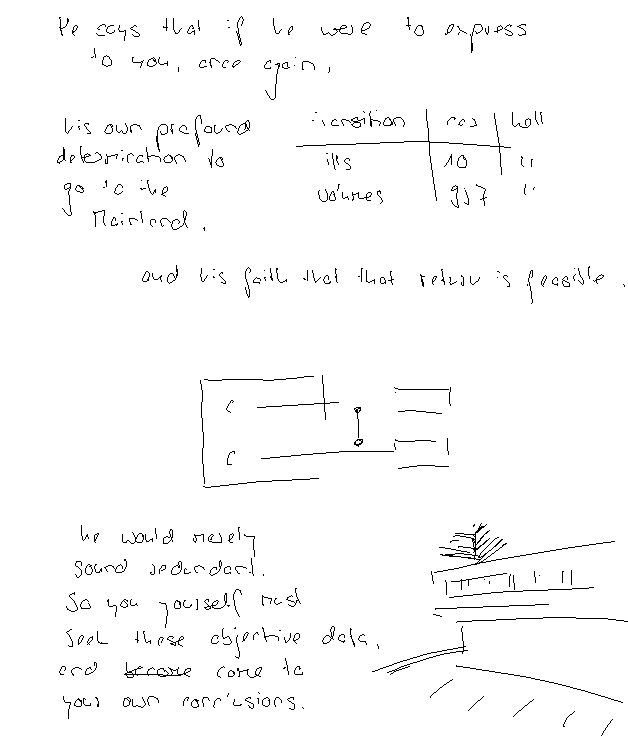 He says that if he were to express
to you, once again,
his own profound
determination to
go to the
Mainland,
transition ros hall
ills 10 "
volumes 957 "
and his faith that that return is feasible,
C
C
he would merely
sound redundant.
So you yourself must
seek these objective data,
and become come to
your own conclusions.